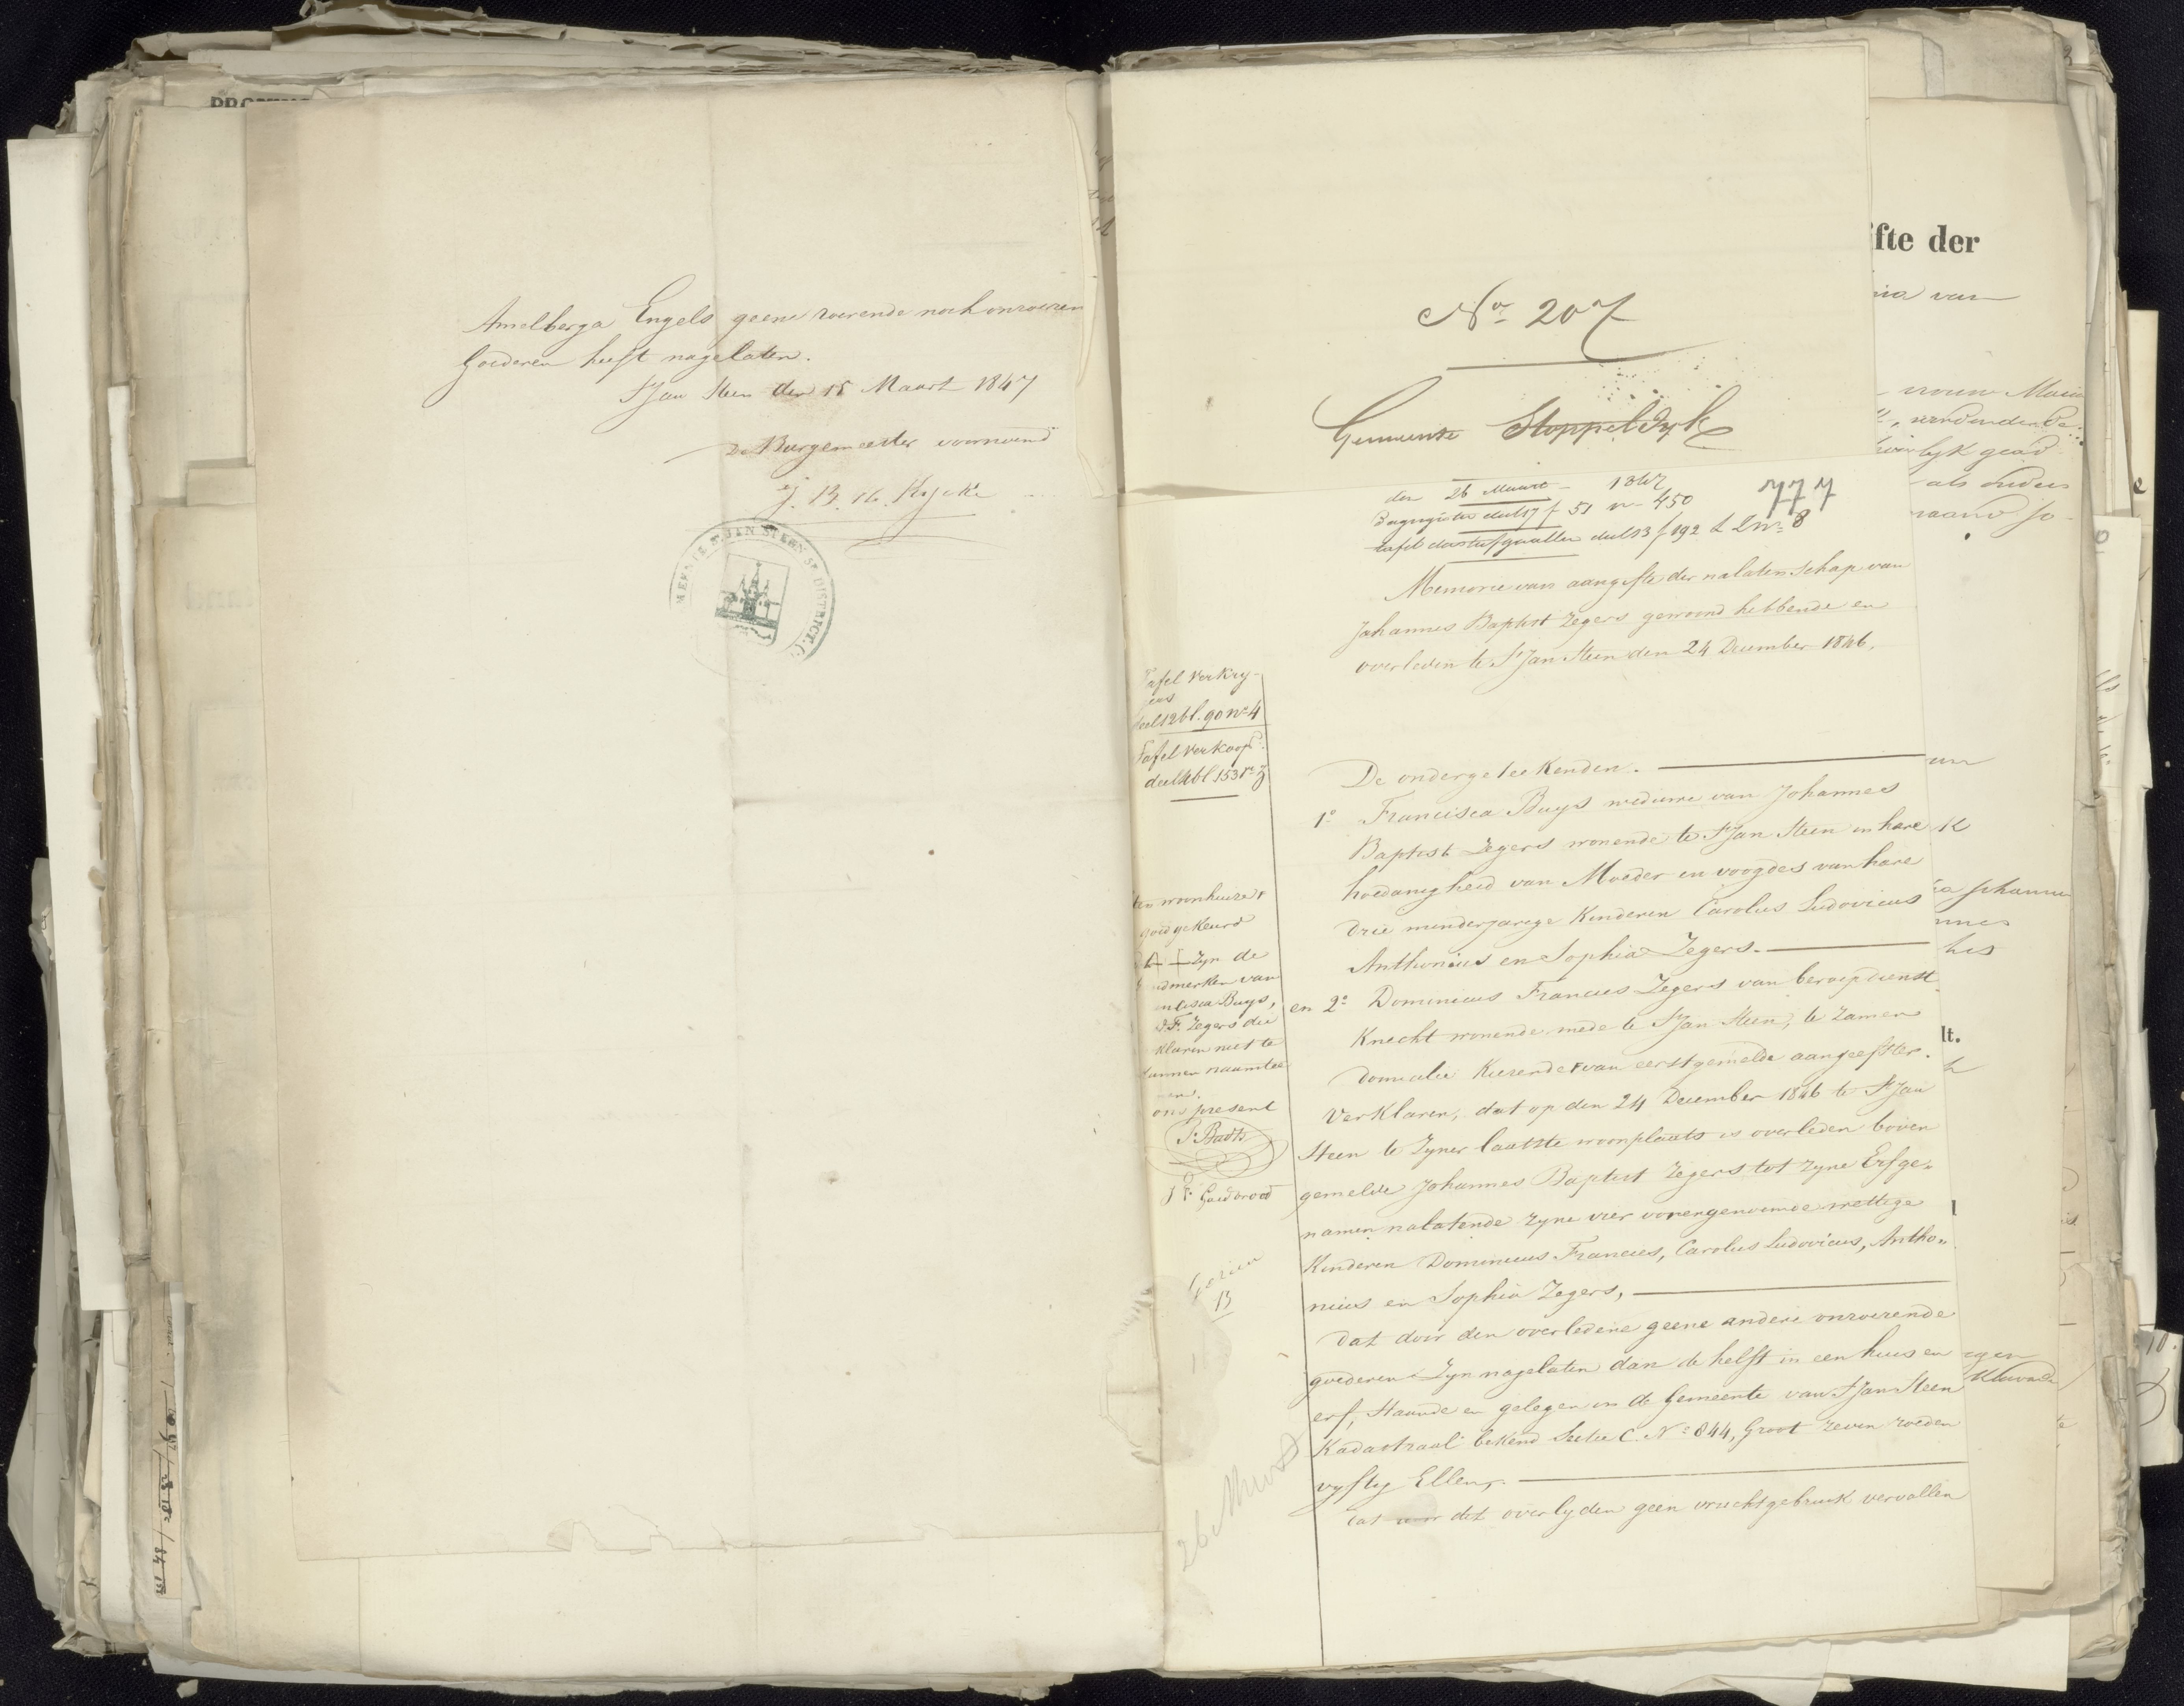 Amelberga Engels geene roerende noch onroeren
Goederen heeft nagelaten.
St Jan Steen den 18 Maart 1847
De Burgemeester voornoemd
ST JAN STEEN 5E DISTRICT
No 207
Gemeente Stoppeldyk
den 26 Maart 1847
777
Dagregister deel 17 f 51 no 450
tafel der sterfgevallen deel 13 f 192 L Z no 8
Memorie van aangifte der nalatenschap van
Johannes Baptist Zegers gewoond hebbende en
overleden te St Jan Steen den 24 December 1846.
Tafel verkry-
gers
deel 12 bl. 90 no 4
Tafel verkoop
deel 4 bl 153 no 3
ten woonhuize
goedgekeurd
Zyn de
ndmerken van
ncisca Buys,
D. F. Zegers die
klaren niet te
kunnen naamtee
nen.
ons present
P. Badts
Goedbrood
Gezien
B
26 Maart
De ondergeteekenden.
1o Francisca Buys weduwe van Johannes
Baptist Zegers wonende te St Jan Steen in hare
hoedanigheid van Moeder en voogdes van hare
drie minderjarige Kinderen Carolus Ludovicus
Anthonius en Sophia Zegers.
en 2o Dominicus Francies Zegers van beroep dienst
Knecht wonende mede te St Jan Steen, te zamen
domicilie Kiezende van eerstgemelde aangeefster.
Verklaren, dat op den 24 December 1846 te St Jan
Steen te Zyner laatste woonplaats is overleden boven
gemelde Johannes Baptist Zegers tot zyne Erfge„
namen nalatende zyne vier vorengenoemde wettige
Kinderen Dominicus Francies, Carolus Ludovicus, Antho„
nius en Sophia Zegers,
Dat door den overledene geene andere onroerende
goederen Zyn nagelaten dan de helft in een huis en
erf, staande en gelegen in de Gemeente van St Jan Steen
Kadastraal bekend Sectie C. No 844, Groot zeven roeden
vyftig Ellen,
Dat dit overlyden geen vruchtgebruik vervallen
fte der
nia van
vrouw Maria
lyk goed
als